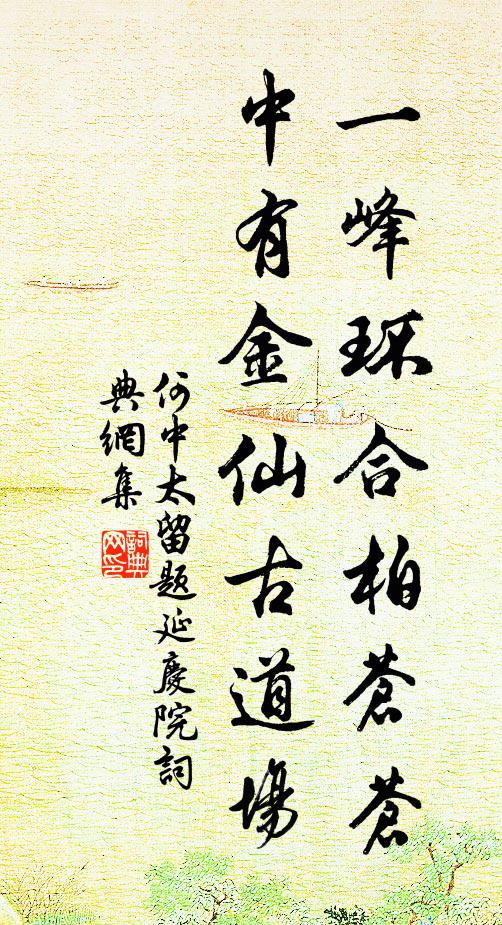 一峰环合柏蒼蒼
中有金仙古道場
何中太留題延慶院詞
典網集
詞典
网印